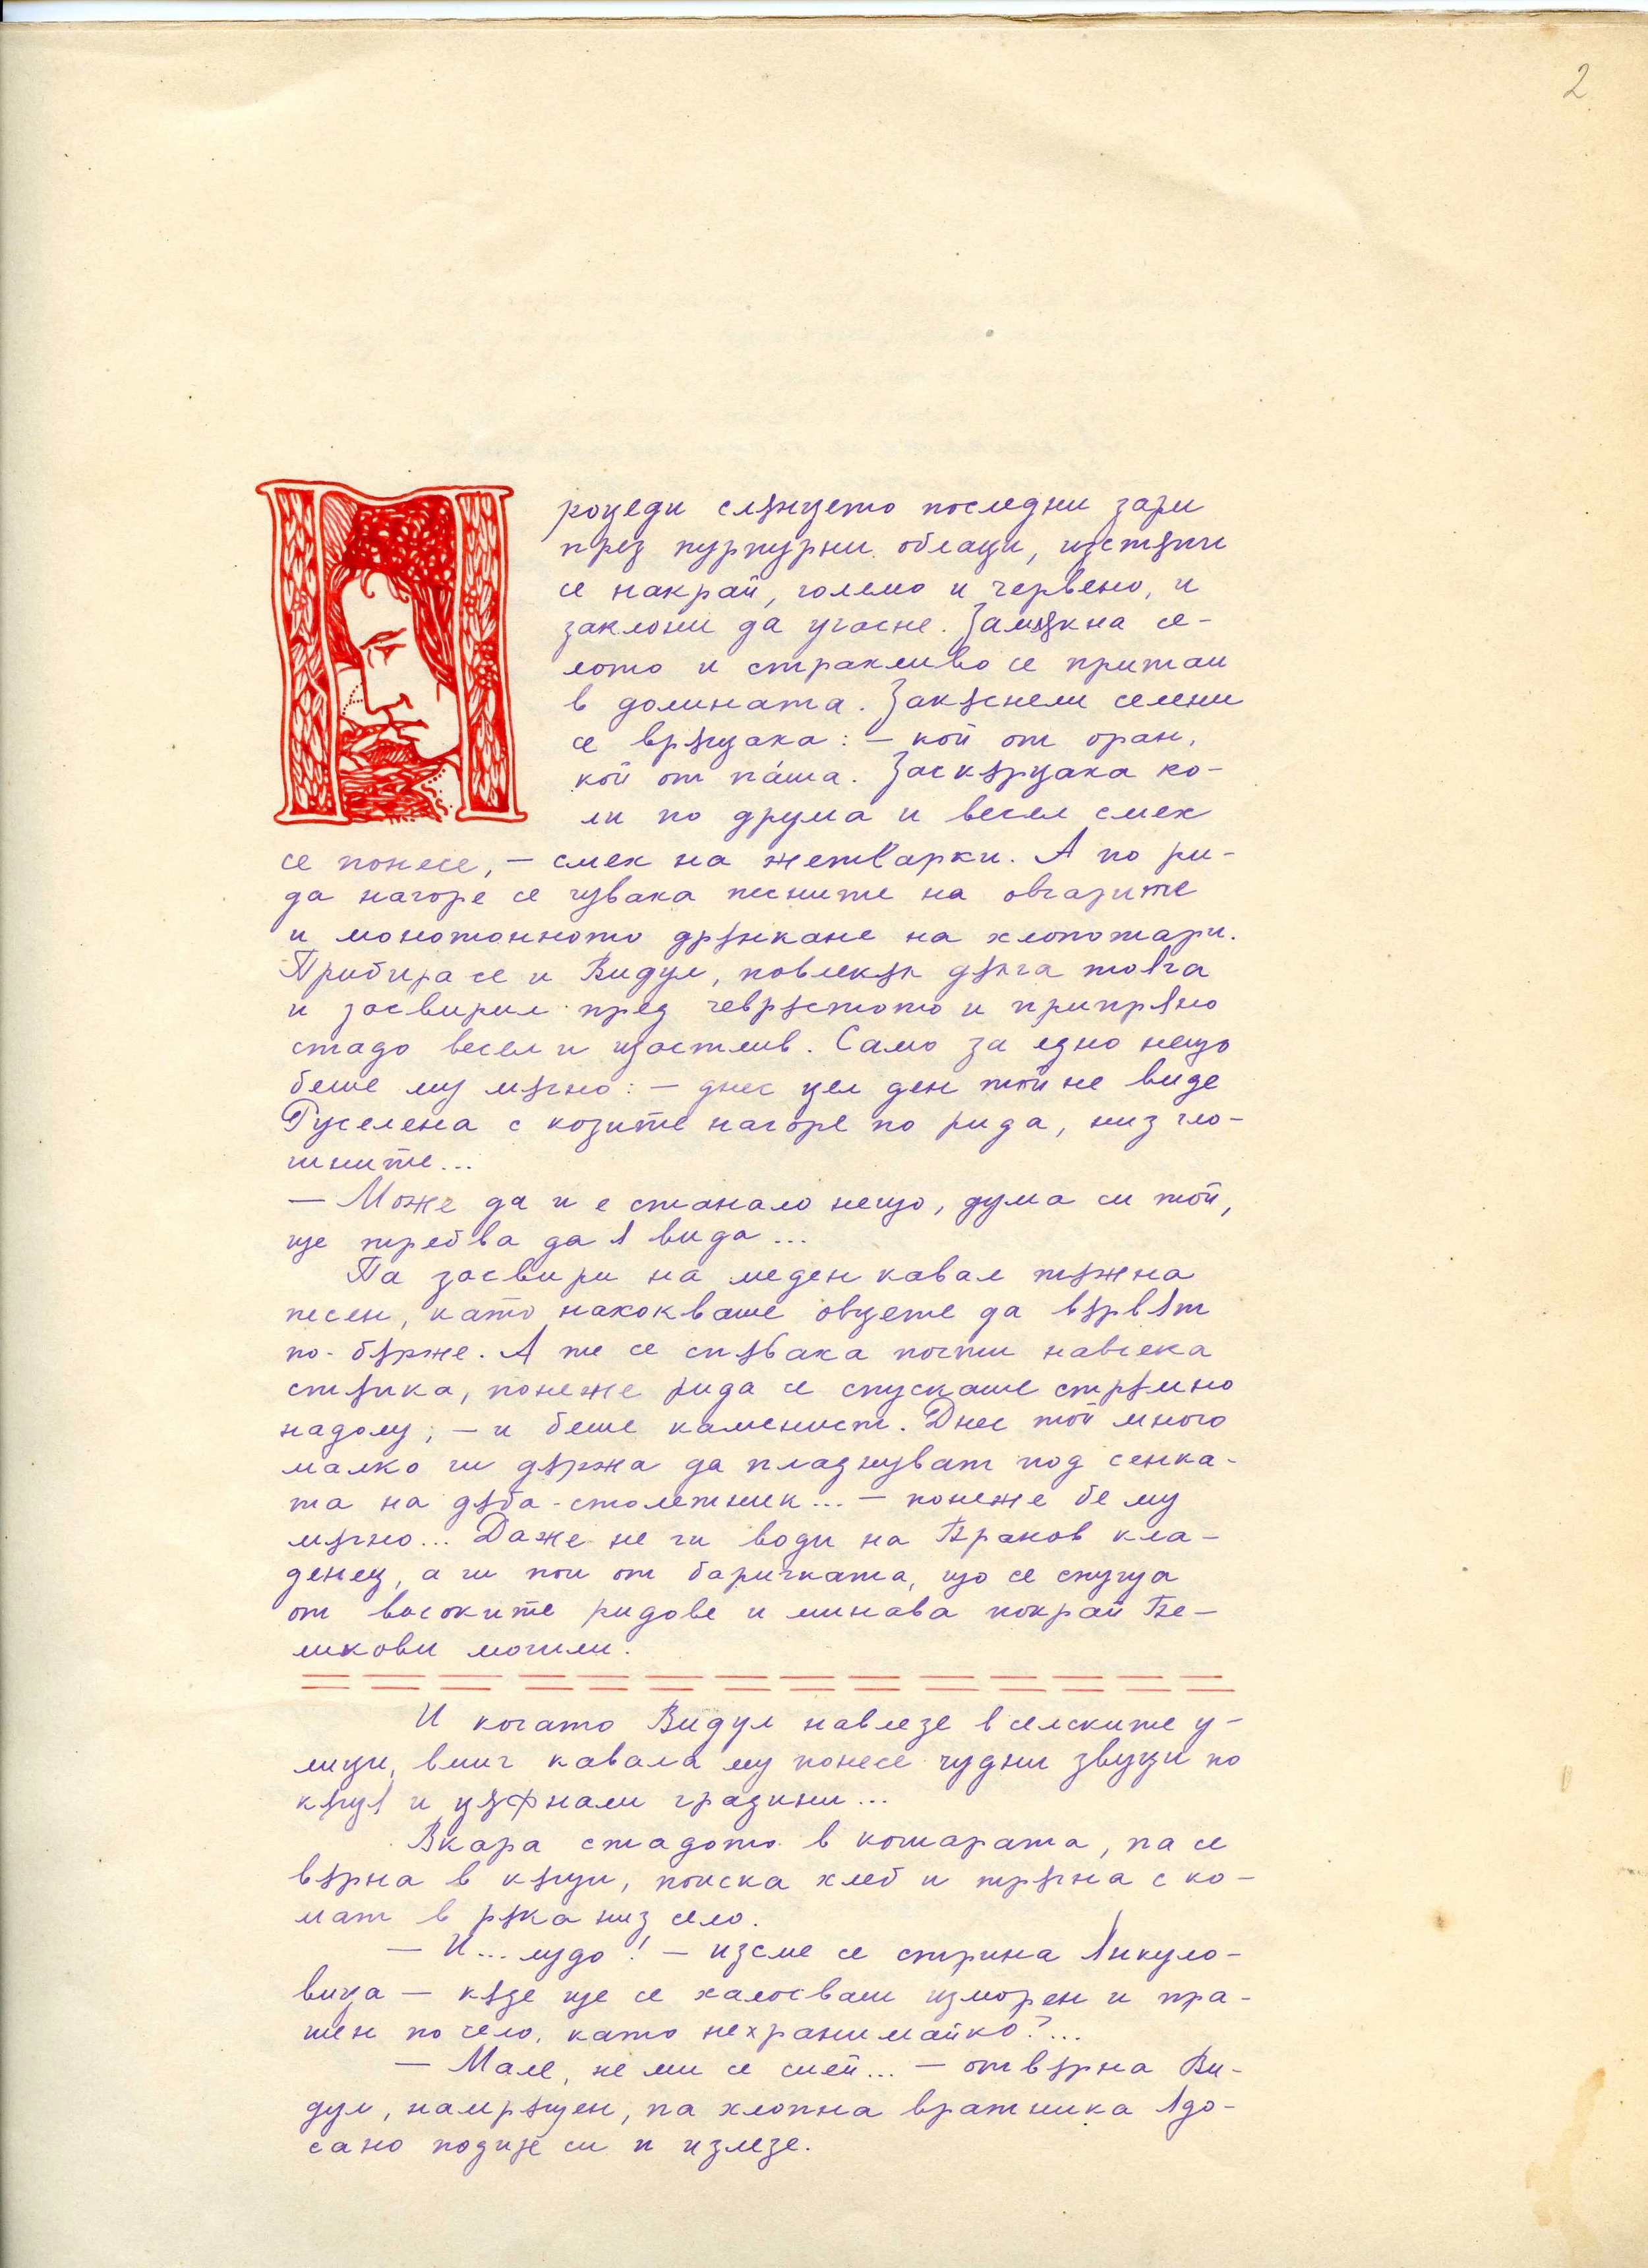 2
Процеди слънцето последни зари
през пурпурни облаци, изстъпи
се накрай, големо и червено, и
заклони да угасне. Замлъкна се-
лото и страхливо се притаи
в долината. Закъснели селени
се връщаха: – кой от оран,
кой от пáша. Заскърцаха ко-
ли по друма и весел смех
се понесе, – смех на жетварки. А по ри-
да нагоре се чуваха песните на овчарите
и монотонното дрънкане на хлопотари.
Прибира се и Видул, повлекъл дълга тояга
и засвирил пред чевръстото и припряно
стадо весел и щастлив. Само за едно нещо
беше му мъчно: – днес цел ден той не виде
Руселена с козите нагоре по рида, низ гло-
гините...
– Може да и е станало нещо, дума си той,
ще требва да я вида...
Па засвири на меден кавал тъжна
песен, като нахокваше овцете да вървят
по-бърже. А те се спъваха почти навсека
стъпка, понеже рида се спускаше стръмно
надолу; – и беше каменист. Днес той много
малко ги държа да пладнуват под сенка-
та на дъба-столетник... – понеже бе му
мъчно... Даже не ги води на Вранов кла-
денец, а ги пои от баричката, що се спуща
от високите ридове и минава покрай Ве-
ликови могили.
И когато Видул навлезе в селските у-
лици, вмиг кавала му понесе чудни звуци по
къщя и цъфнали градини...
Вкара стадото в кошарата, па се
върна в къщи, поиска хлеб и тръгна с ко-
мат в ръка низ село.
– И... лудо! – изсме се стрина Янкуло-
вица – къде ще се халосваш изморен и пра-
шен по село, като нехранимайко?...
– Мале, не ми се смей... – отвърна Ви-
дул, намръщен, па хлопна вратника ядо-
сано подире си и излезе.